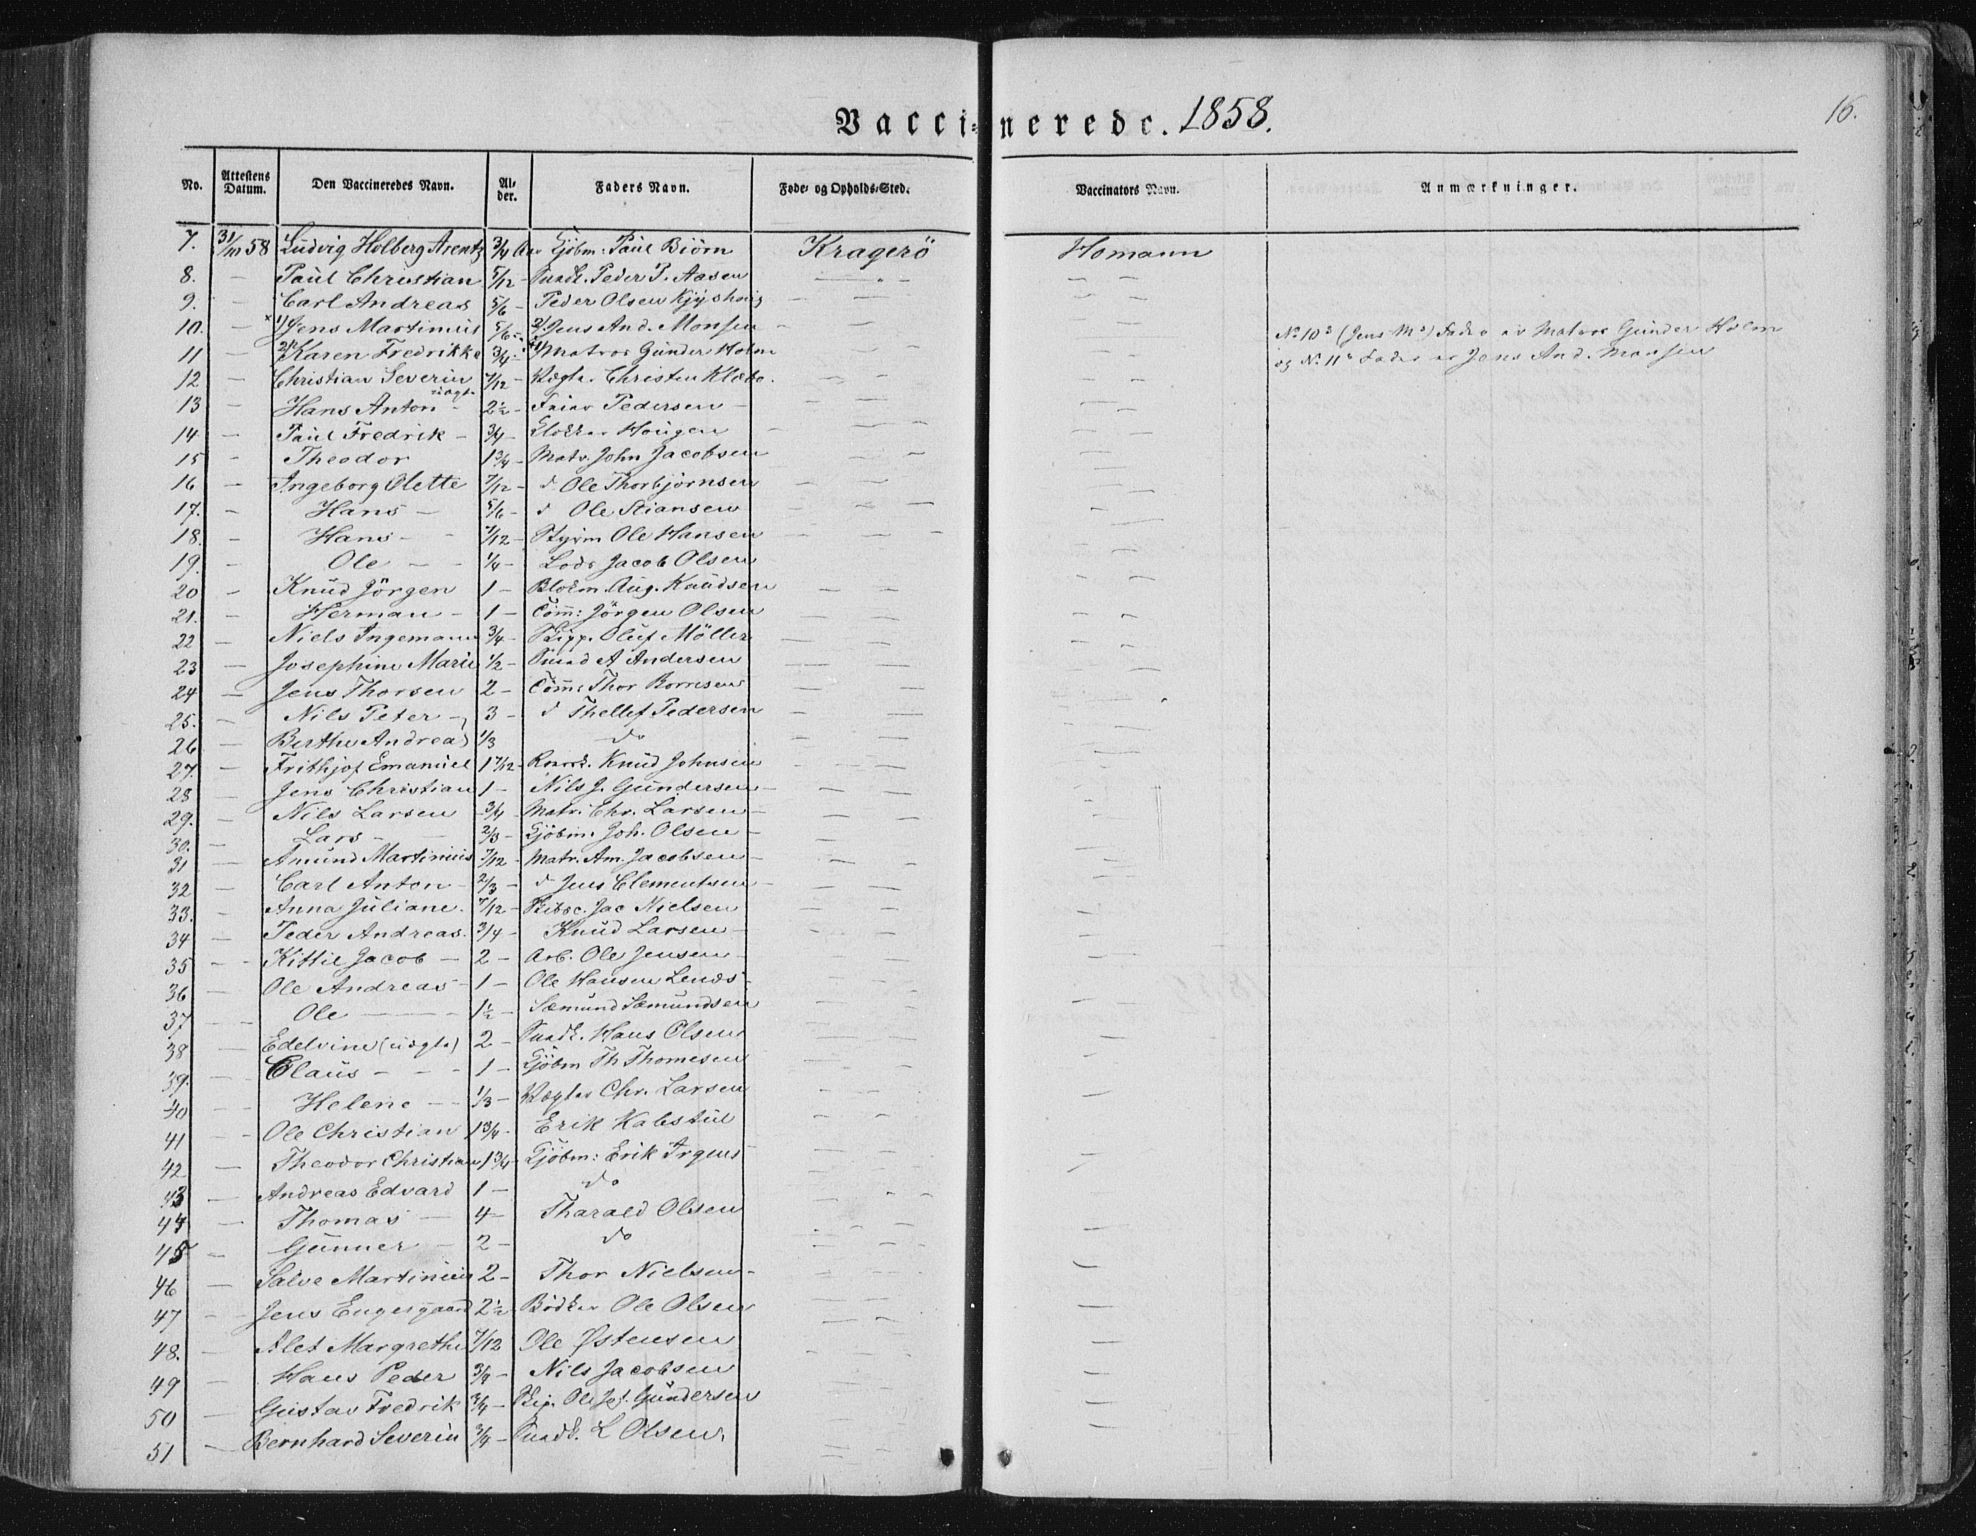 Vaccinerede. 1858.
16.
No. Attestens Datum. Den Vaccineredes Navn. Alder. Faders Navn. Føde- og Opholds-Sted. Vaccinators Navn. Anmærkninger.
7. 31/10 58 Ludvig Holberg Arentz 3/4 Aar Kjöbm: Paul Biörn Kragerö Homann
8. — Paul Christian 5/12 Snedk. Peder P. Aasen — —
9. — Carl Andreas 5/6 — Peder Olsen — —
10. — 1) Jens Martinius 5/6 — 2) Jens And. Monsen — — No 10 (Jens M) Fader er Matros Gunder Holm
11 — 2) Karen Fredrikke 3/4 — 1) Matros Gunder Holm — — og No 11 Fader er Jens And. Monsen
12 — Christian Severin 7/12 — Vægter Christen Klæbo — —
13 — Hans Anton uægte 2½ — Pedersen — —
14 — Paul Fredrik — 3/4 — Klokker Hougen — —
15 — Theodor 1 3/4 Matr. John Jacobsen — —
16 — Ingeborg Olette 7/12 — d Ole Thorbjörnsen — —
17. — Hans — 5/6 — d Ole Stiansen — —
18. — Hans — 7/12 — Styrm Ole Hansen — —
19. — Ole — 1/4 — Lods Jacob Olsen — —
20 — Knud Jörgen 1 — Blokm. Aug. Knudsen — —
21. — Herman — 1 — Tömm: Jörgen Olsen — —
22 — Niels Ingemann 3/4 — Skipp. Oluf Möller — —
23 — Josephine Marie 1/2 — Smed A Andersen — —
24 — Jens Thorsen 2 — Tömm: Thor Borresen — —
25. — Nils Peter — 3 — d Thellef Pedersen — —
26 — Berthe Andrea 1/3 do — —
27. — Frithjof Emanuel 1 7/12 — Knud Johnsen — —
28 — Jens Christian 1 — Nils J. Gundersen — —
29. — Nils Larsen 3/4 Matr. Chr. Larsen — —
30. — Lars — 2/3 — Kjöbm. Joh. Olsen — —
31 — Amund Martinius 7/12 — Matr. Am. Jacobsen — —
32 — Carl Anton — 2/3 — d Jens Clementsen — —
33. — Anna Juliane. 7/12 — Skibsc. Jac Nielsen — —
34 — Peder Andreas. 3/4 — Knud Larsen — —
35 — Kittil Jacob — 2 — Arb. Ole Jensen — —
36 — Ole Andreas — 1 — Ole Hansen Lenæs — —
37 — Ole — 1½ — Sæmund Sæmundsen — —
38 — Edelvine (uægte) 2 — Snedk. Hans Olsen — —
39. — Claus — 1 — Kjöbm Th Thomesen — —
40 — Helene — 1/3 — Vægter Chr. Larsen — —
41 — Ole Christian 1 3/4 — Erik Kalstul — —
42 — Theodor Christian 1 3/4 Kjöbm: Erik Irgens — —
43 — Andreas Edvard 1 — do — —
44 — Thomas — 4 — Tharald Olsen — —
45 — Gunner — 2 — do — —
46 — Salve Martinius 2 — Thor Nielsen — —
47 — Jens 2½ — Bödker Ole Olsen — —
48. — Alet Margrethe 7/12 Ole Østensen — —
49 — Hans Peder 3/4 — Nils Jacobsen — —
50 — Gustav Fredrik 3/4 — Skip. Ole Gundersen — —
51 — Bernhard Severin 3/4 — Snedk. L Olsen. — —